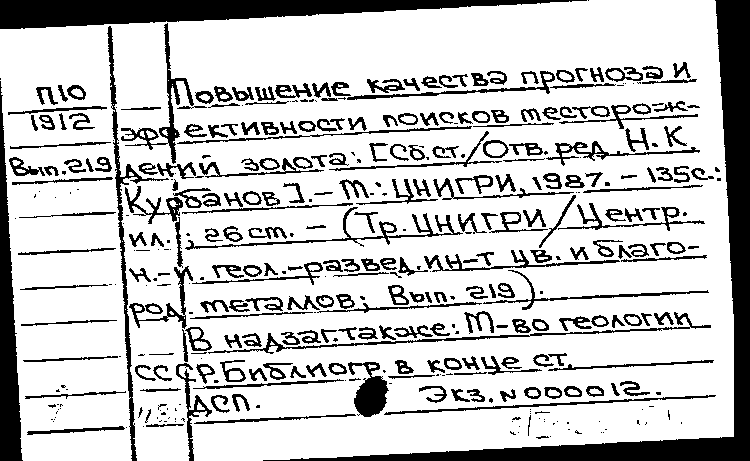 П10 Повышение качества прогноза и
1912 эффективности поисков месторож-
Вып.219 дений золота: [Сб.ст./Отв.ред. Н.К.
Курбанов]. – М.: ЦНИГРИ, 1987. – 135с.:
ил.; 26 см. – (Тр. ЦНИГРИ/Центр.
н.-и. геол.-развед. ин-т цв. и благо-
род. металлов; Вып. 219).
В надзаг. также: М-во геологии
СССР. Библиогр. в конце ст.
ДСП. Экз. N000012.